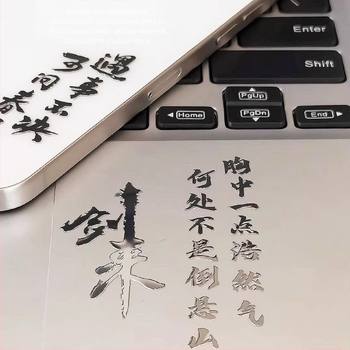 遇事不决
可问春风
Enter
Shift
PgUp
Home
PgDn
End
胸中一点浩然气
何处不是倒悬山
剑来